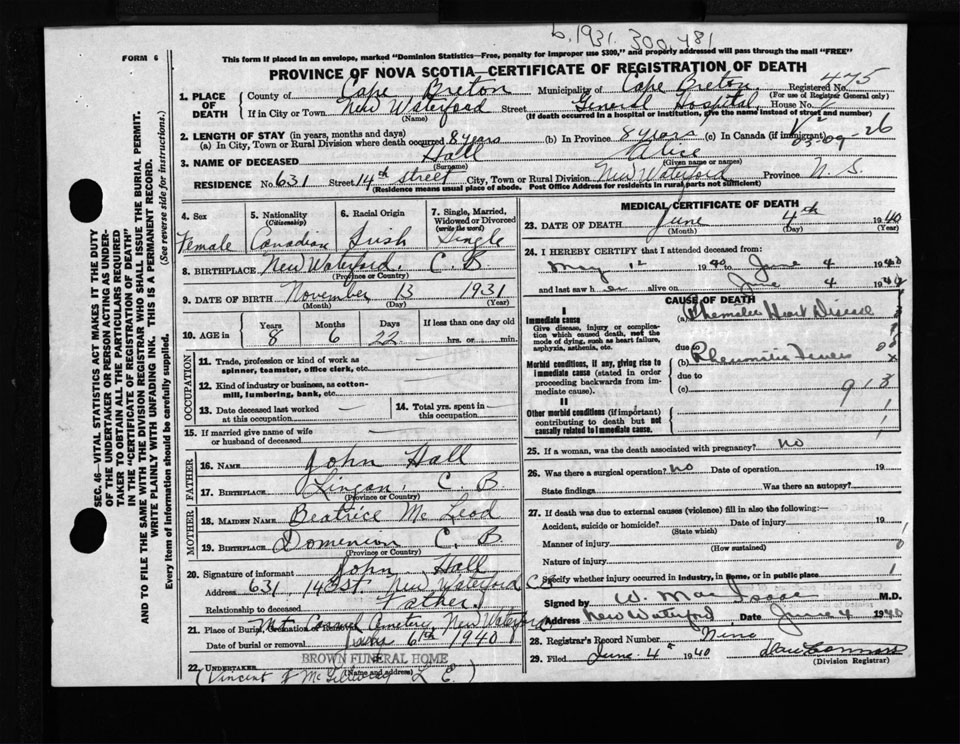 b. 1931. 300,481
FORM 6
This form if placed in an envelope, marked "Dominion Statistics—Free, penalty for improper use $300," and properly addressed will pass through the mail "FREE"
PROVINCE OF NOVA SCOTIA—CERTIFICATE OF REGISTRATION OF DEATH
1. PLACE OF DEATH
County of Cape Breton Municipality of Cape Breton Registered No. 475
(For use of Registrar General only)
If in City or Town New Waterford Street General Hospital, House No.
(Name) (If death occurred in a hospital or institution, give the name instead of street and number)
2. LENGTH OF STAY (in years, months and days)
(a) In City, Town or Rural Division where death occurred 8 years (b) In Province 8 years (c) In Canada (if immigrant)
03-09-26
3. NAME OF DECEASED Hall Alice
(Surname) (Given name or names)
RESIDENCE No. 631 Street 14th Street City, Town or Rural Division New Waterford Province N. S.
(Residence means usual place of abode. Post Office Address for residents in rural parts not sufficient)
4. Sex Female
5. Nationality (Citizenship) Canadian
6. Racial Origin Irish
7. Single, Married, Widowed or Divorced (write the word) Single
8. BIRTHPLACE New Waterford, C. B
(Province or Country)
9. DATE OF BIRTH November 13 1931
(Month) (Day) (Year)
10. AGE in Years 8 Months 6 Days 22 If less than one day old
hrs. or min.
OCCUPATION
11. Trade, profession or kind of work as spinner, teamster, office clerk, etc. —
12. Kind of industry or business, as cotton-mill, lumbering, bank, etc. —
13. Date deceased last worked at this occupation —
14. Total yrs. spent in this occupation —
15. If married give name of wife or husband of deceased —
FATHER
16. NAME John Hall
17. BIRTHPLACE Lingan, C. B.
(Province or Country)
MOTHER
18. MAIDEN NAME Beatrice McLeod
19. BIRTHPLACE Domenion C. B
(Province or Country)
20. Signature of informant John Hall
Address 631, 14th St. New Waterford C.B
Relationship to deceased Father
21. Place of Burial, Cremation or Removal Mt Carmel Cemetery, New Waterford
Date of burial or removal June 6th 1940
BROWN FUNERAL HOME
22. UNDERTAKER
(Name and address)
(Vincent J L E.)
MEDICAL CERTIFICATE OF DEATH
23. DATE OF DEATH June 4th 1940
(Month) (Day) (Year)
24. I HEREBY CERTIFY that I attended deceased from:
May 12 1940 to June 4 1940
and last saw her alive on June 4 1940
CAUSE OF DEATH
I
Immediate cause (a) Rhematic Heart Disease
Give disease, injury or complication which caused death, not the mode of dying, such as heart failure, asphyxia, asthenia, etc.
due to
Morbid conditions, if any, giving rise to immediate cause (stated in order proceeding backwards from immediate cause).
(b) Rheumatic Fever
due to
(c)
918
II
Other morbid conditions (if important) contributing to death but not causally related to immediate cause.
25. If a woman, was the death associated with pregnancy? no
26. Was there a surgical operation? no Date of operation 19
State findings Was there an autopsy?
27. If death was due to external causes (violence) fill in also the following:—
Accident, suicide or homicide? Date of injury 19
(State which)
Manner of injury
(How sustained)
Nature of injury
Specify whether injury occurred in industry, in home, or in public place
Signed by W. MacIsaac M.D.
Address New Waterford Date June 4 1940
28. Registrar's Record Number Nine
29. Filed June. 4th 1940
(Division Registrar)
SEC. 46—VITAL STATISTICS ACT MAKES IT THE DUTY OF THE UNDERTAKER OR PERSON ACTING AS UNDERTAKER TO OBTAIN ALL THE PARTICULARS REQUIRED IN THE "CERTIFICATE OF REGISTRATION OF DEATH" AND TO FILE THE SAME WITH THE DIVISION REGISTRAR WHO SHALL ISSUE THE BURIAL PERMIT.
WRITE PLAINLY WITH UNFADING INK. THIS IS A PERMANENT RECORD.
Every item of information should be carefully supplied. (See reverse side for instructions.)